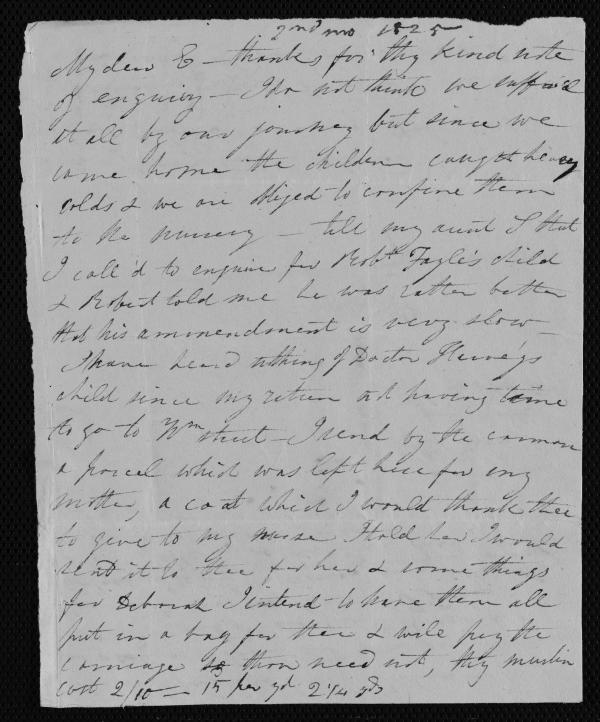 2nd mo 1825
My dear E - thanks for thy kind note
of enquiry - I do not think we suffer'd
at all by our journey but since we
came home the children caught heavy
colds & we are obliged to confine them
to the nursery - tell my aunt S that
I call'd to enquire for Robt Fayle's child
& Robert told me he was rather better
that his ammendment is very slow -
I have heard nothing of Doctor Harvey's
child since my return not having time
to go to Wm street - I send by the carman
a parcel which was left here for my
mother, a coat which I would thank thee
to give to my nurse I told her I would
send it to thee for her & some things
for Deborah I intend to have them all
put in a bag for thee & will pay the
carriage so thou need not, thy muslin
cost 2/10 - 15 per yd 2 1/4 yds